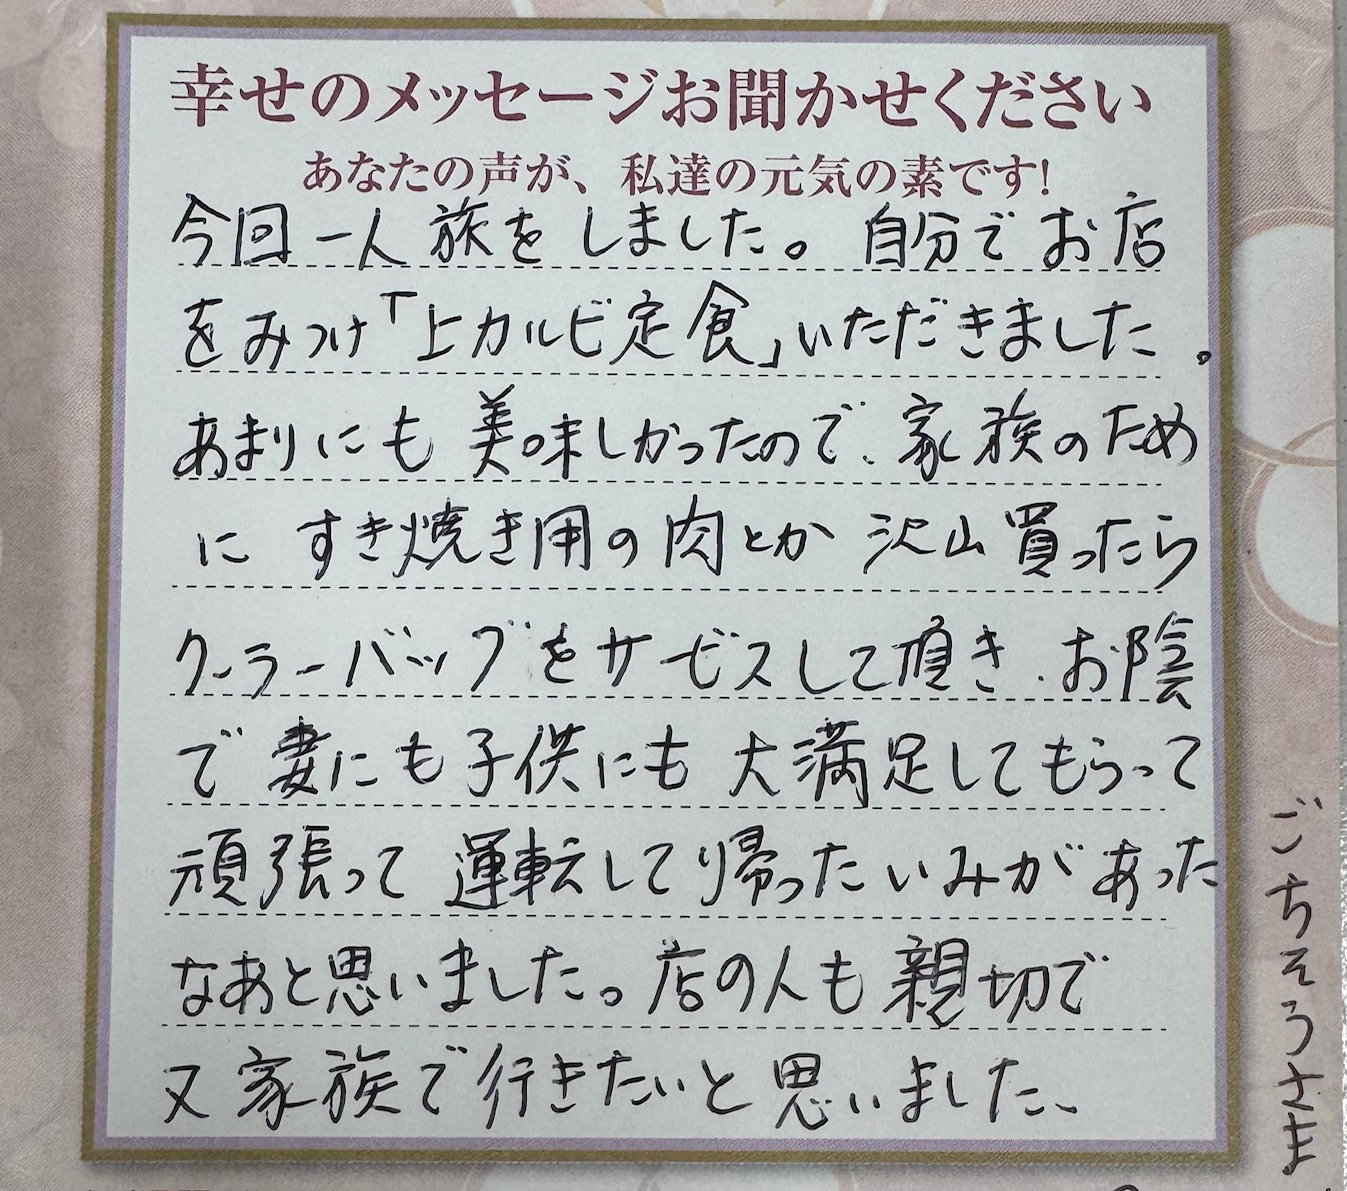 幸せのメッセージお聞かせください
あなたの声が、私達の元気の素です!
今回一人旅をしました。自分でお店
をみつけ「上カルビ定食」いただきました。
あまりにも美味しかったので、家族のため
にすき焼き用の肉とか沢山買ったら
クーラーバッグをサービスして頂き、お陰
で妻にも子供にも大満足してもらって
頑張って運転して帰ったいみがあった
なあと思いました。店の人も親切で
又家族で行きたいと思いました、
ごちそうさま